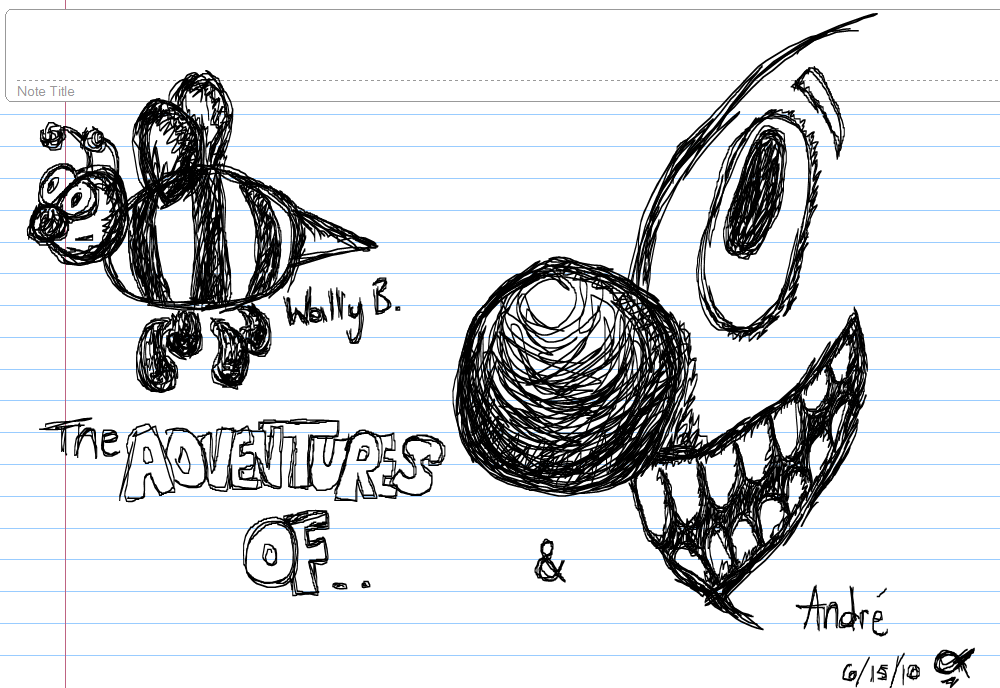 Note Title
Wally B.
The ADVENTURES
OF...
&
André
6/15/10